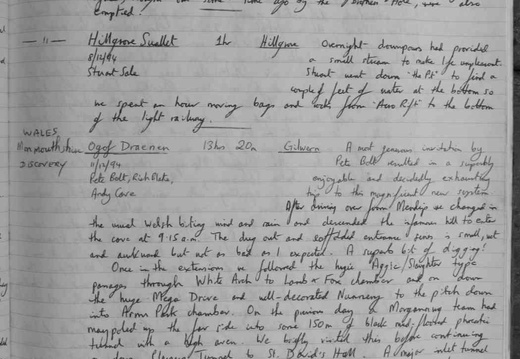 emptied!
— " —
Hillgrove Swallet 1hr Hillgrove Overnight downpours had provided
8/12/94 a small stream to make life unpleasant.
Stuart Sale Stuart went down "the Pit" to find a
couple of feet of water at the bottom so
we spent an hour moving bags and rocks from "Aero Rift" to the bottom
of the light railway.
WALES
Monmouthshire Ogof Draenen 13hrs 20m Gilwern A most generous invitation by
DISCOVERY 11/12/94 Pete Bolt resulted in a superbly
Pete Bolt, Rich enjoyable and decidedly exhausting
Andy Cave trip to this magnificent new system
After driving over from Mendip we changed in
the usual Welsh biting wind and rain and descended the infamous hill to enter
the cave at 9.15 a.m. The dug out and scaffolded entrance series is small, wet
and awkward but not as bad as I expected. A superb bit of digging!
Once in the extensions we followed the huge Aggie/Slaughter type
passages through White Arch to Lamb & Fox chamber and on down
the huge Mega Drive and well-decorated Nunnery to the pitch down
into Arms Park chamber. On the previous day a Morgannwg team had
maypoled up the far side into some 150m of black mud-floored phreatic
tunnel with a high aven. We briefly visited this before continuing
on down Tunnel to St. David's Hall. A major inlet tunnel